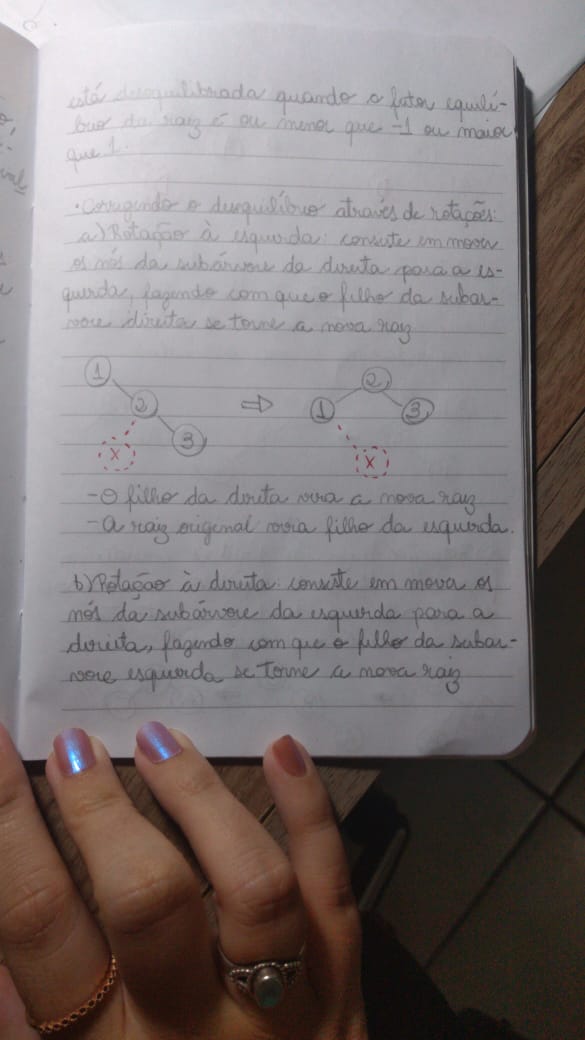 está desequilibrada quando o fator equilí-
brio da raiz é ou menor que -1 ou maior
que 1.
• Corrigindo o desequilíbrio através de rotações:
a) Rotação à esquerda: consiste em mover
os nós da subárvore da direita para a es-
querda, fazendo com que o filho da subar-
vore direita se torne a nova raiz
1
2
3
X
⇒
2
1
3
X
- O filho da direita vira a nova raiz
- A raiz original vira filho da esquerda.
b) Rotação à direita: consiste em mova os
nós da subárvore da esquerda para a
direita, fazendo com que o filho da subar-
vore esquerda se torne a nova raiz